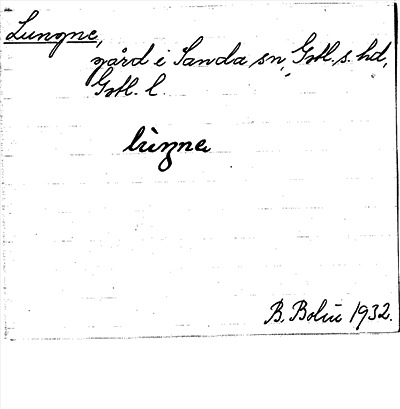 Lungne,
gård i Sanda sn, Gotl. s. hd,
Gotl. l.
lùŋne
B. Bolin 1932.